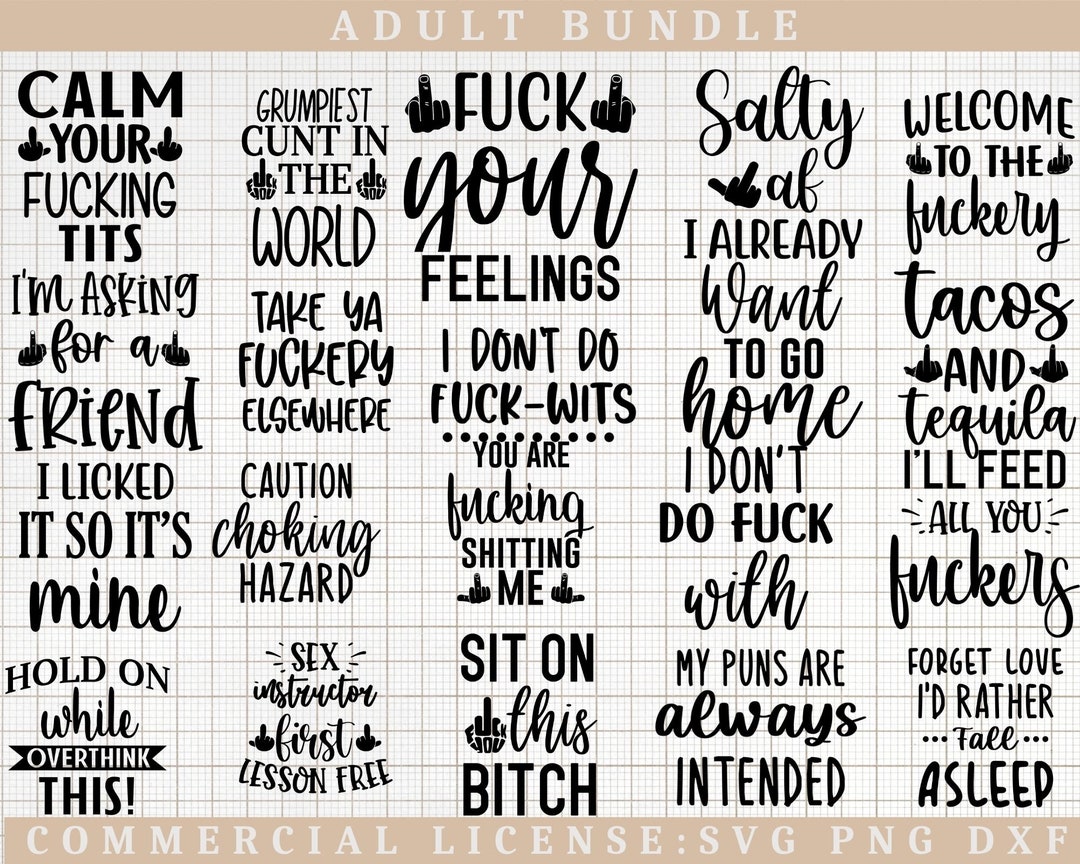 ADULT BUNDLE
CALM
YOUR
FUCKING
TITS
I'M ASKING
for a
FRIEND
I LICKED
IT SO IT'S
mine
HOLD ON
while
OVERTHINK
THIS!
GRUMPIEST
CUNT IN
FUCK YOU THE FUCK YOU
WORLD
TAKE YA
FUCKERY
ELSEWHERE
CAUTION
choking
HAZARD
SEX
instructor
first
LESSON FREE
FUCK
your
FEELINGS
I DON'T DO
FUCK-WITS
YOU ARE
fucking
SHITTING
ME
SIT ON
FUCK YOU this
BITCH
Salty
af
I ALREADY
Want
TO GO
home
I DON'T
DO FUCK
with
MY PUNS ARE
always
INTENDED
WELCOME
TO THE
fuckery
tacos
AND
tequila
I'LL FEED
ALL YOU
fuckers
FORGET LOVE
I'D RATHER
Fall
ASLEEP
COMMERCIAL LICENSE:SVG PNG DXF